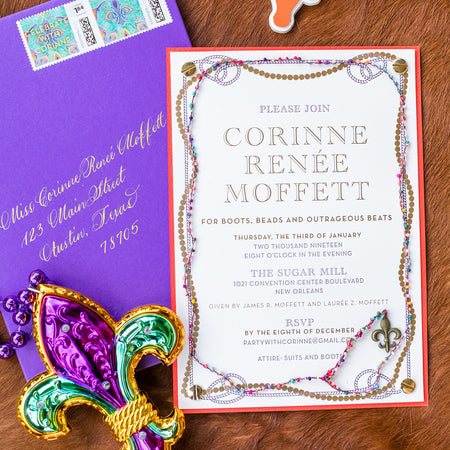 CELEBRATE
WITH
CORINNE
Miss Corinne Renée Moffett
123 Main Street
Austin, Texas
78705
PLEASE JOIN
CORINNE
RENÉE
MOFFETT
FOR BOOTS, BEADS AND OUTRAGEOUS BEATS
THURSDAY, THE THIRD OF JANUARY
TWO THOUSAND NINETEEN
EIGHT O'CLOCK IN THE EVENING
THE SUGAR MILL
1021 CONVENTION CENTER BOULEVARD
NEW ORLEANS
GIVEN BY JAMES R. MOFFETT AND LAURÉE Z. MOFFETT
RSVP
BY THE EIGHTH OF DECEMBER
PARTYWITHCORINNE@GMAIL.COM
ATTIRE: SUITS AND BOOTS